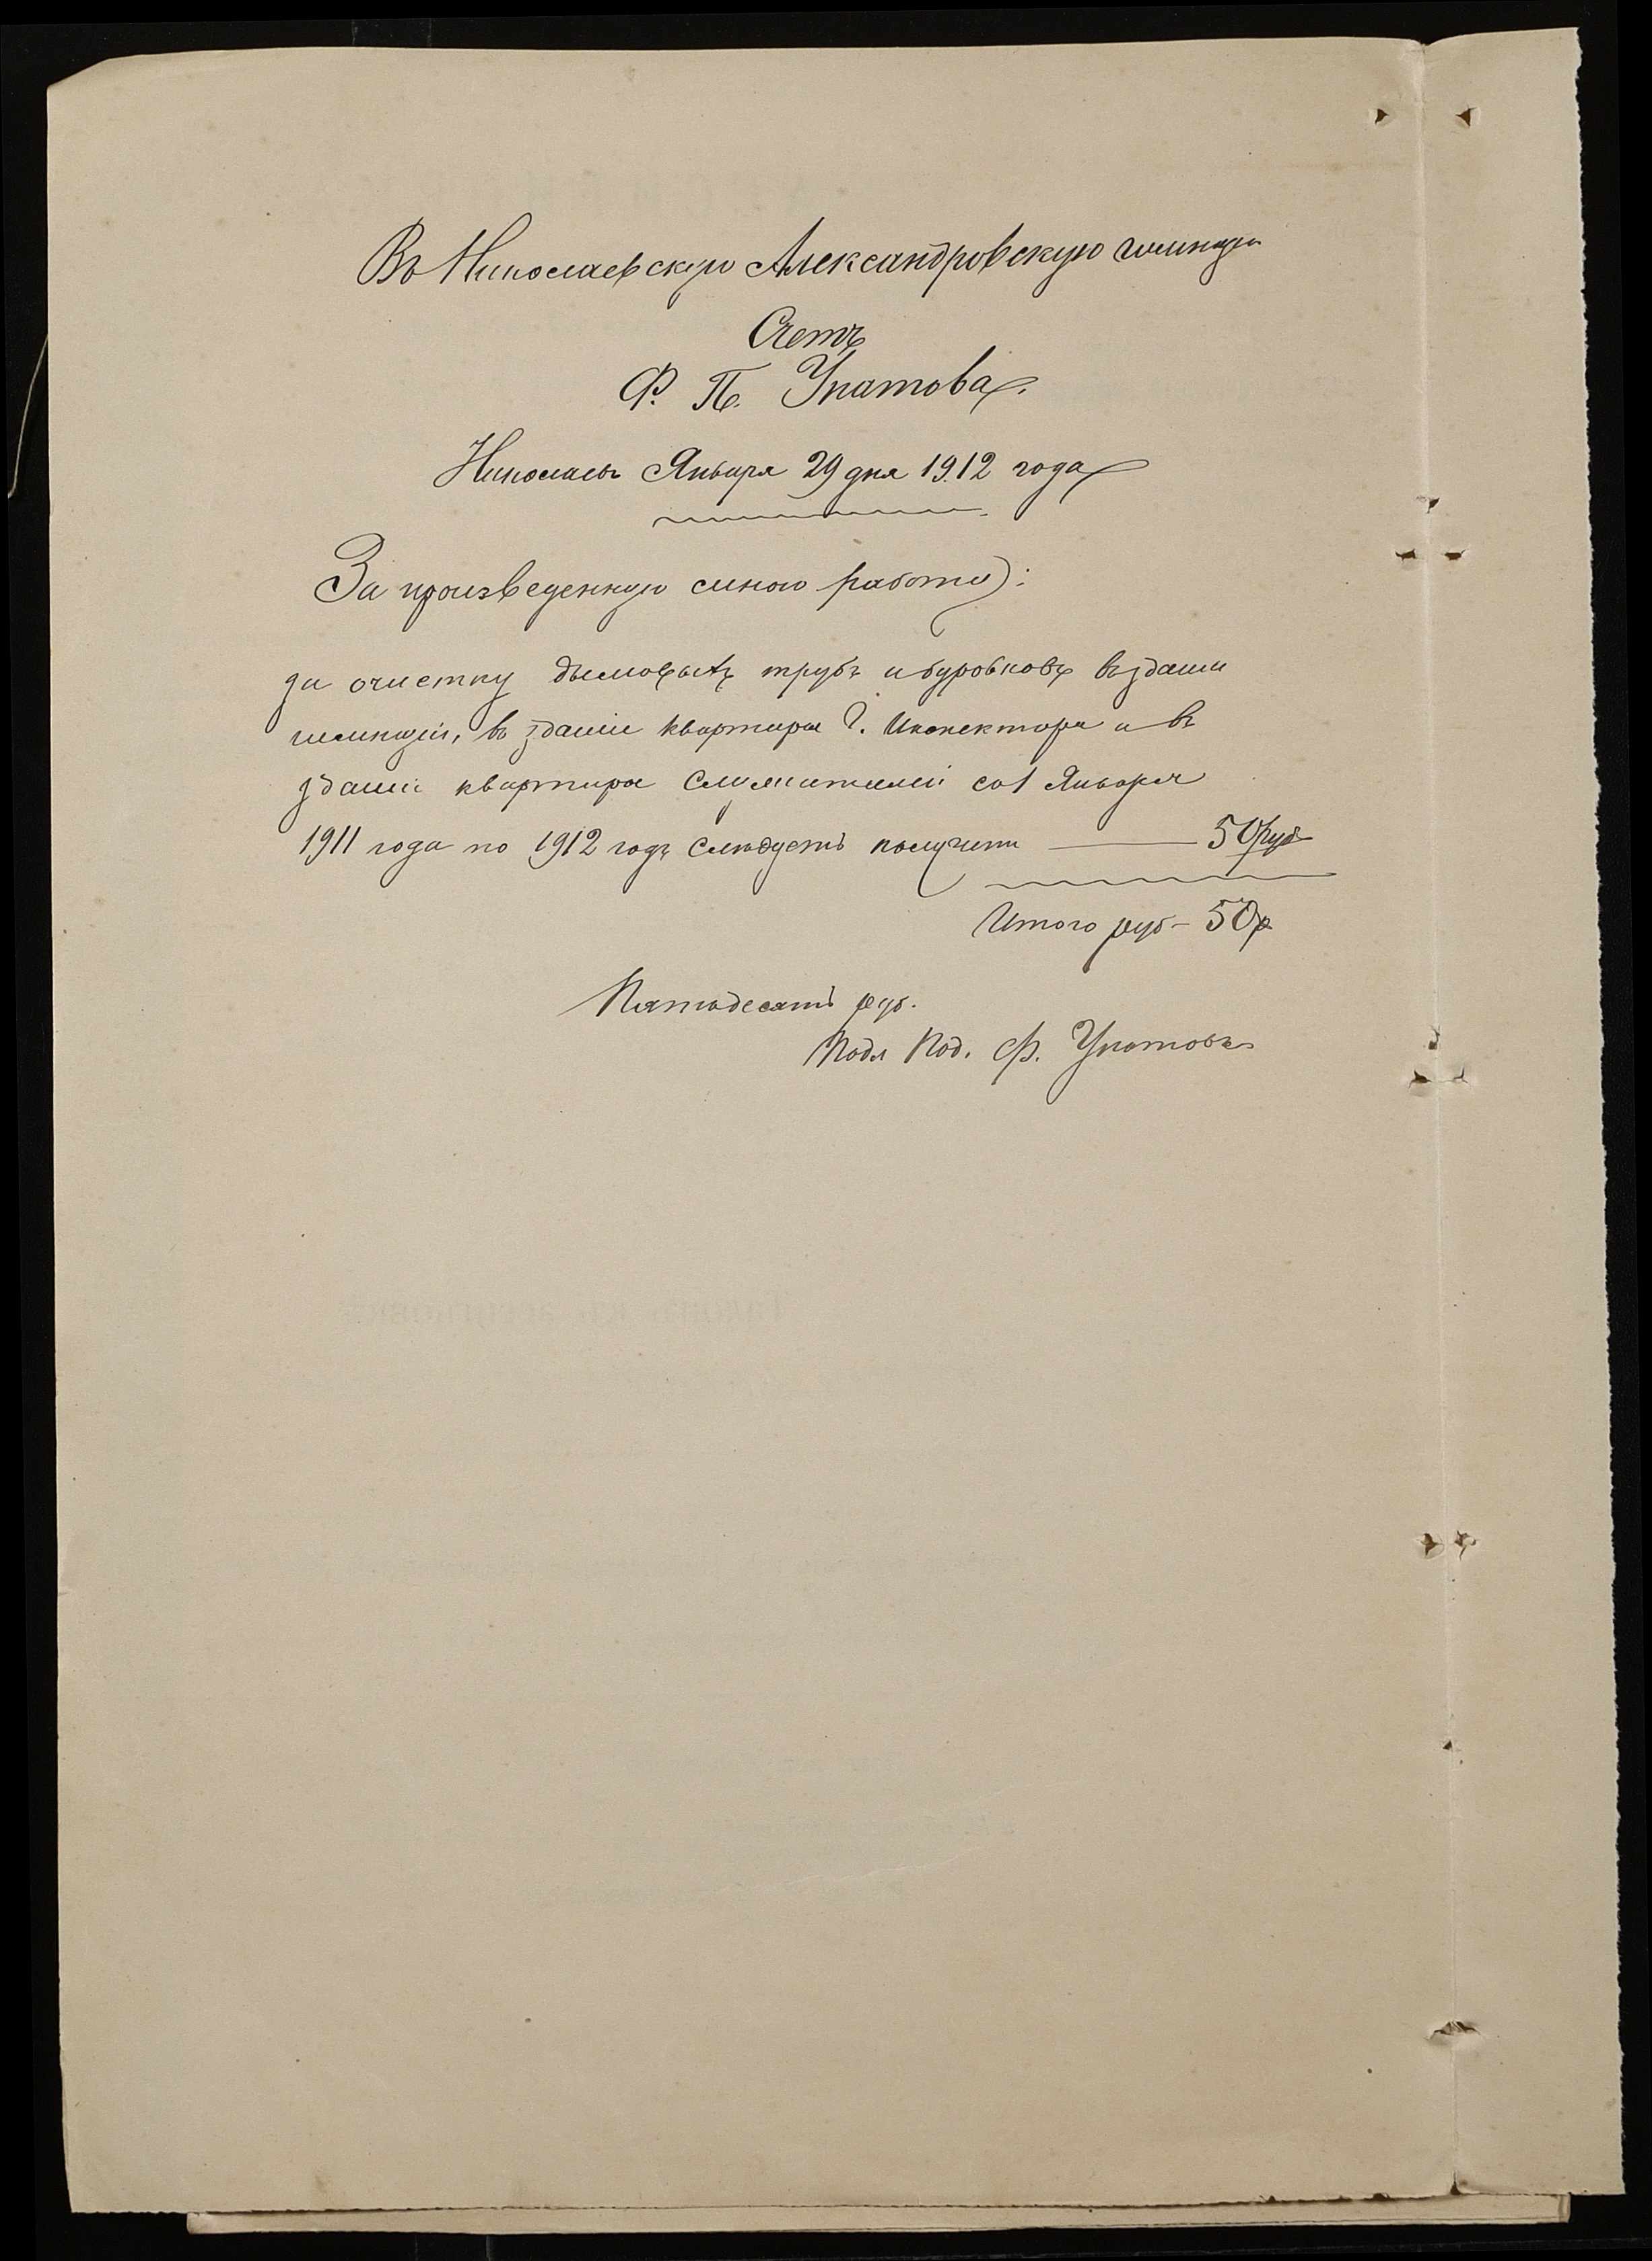 Въ Николаевскую Александровскую гимназiю
Счетъ
Ф. П. Упатова.
Николаевъ Января 29 дня 1912 года
За произведенную мною работу:
за очистку дымовыхъ трубъ и буровковъ въ зданiи
гимназiи, въ зданiи квартиры Г. Инспектора и въ
зданiи квартиры служителей съ 1 Января
1911 года по 1912 годъ слѣдуетъ получить — 50 руб
Итого руб — 50 р
Пятьдесятъ руб.
Подл Под. Ф. Упатовъ